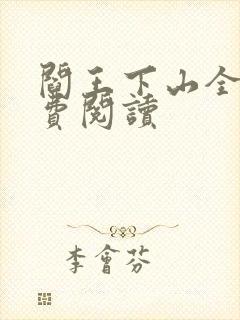 閻王下山全
費閱讀
李會芬